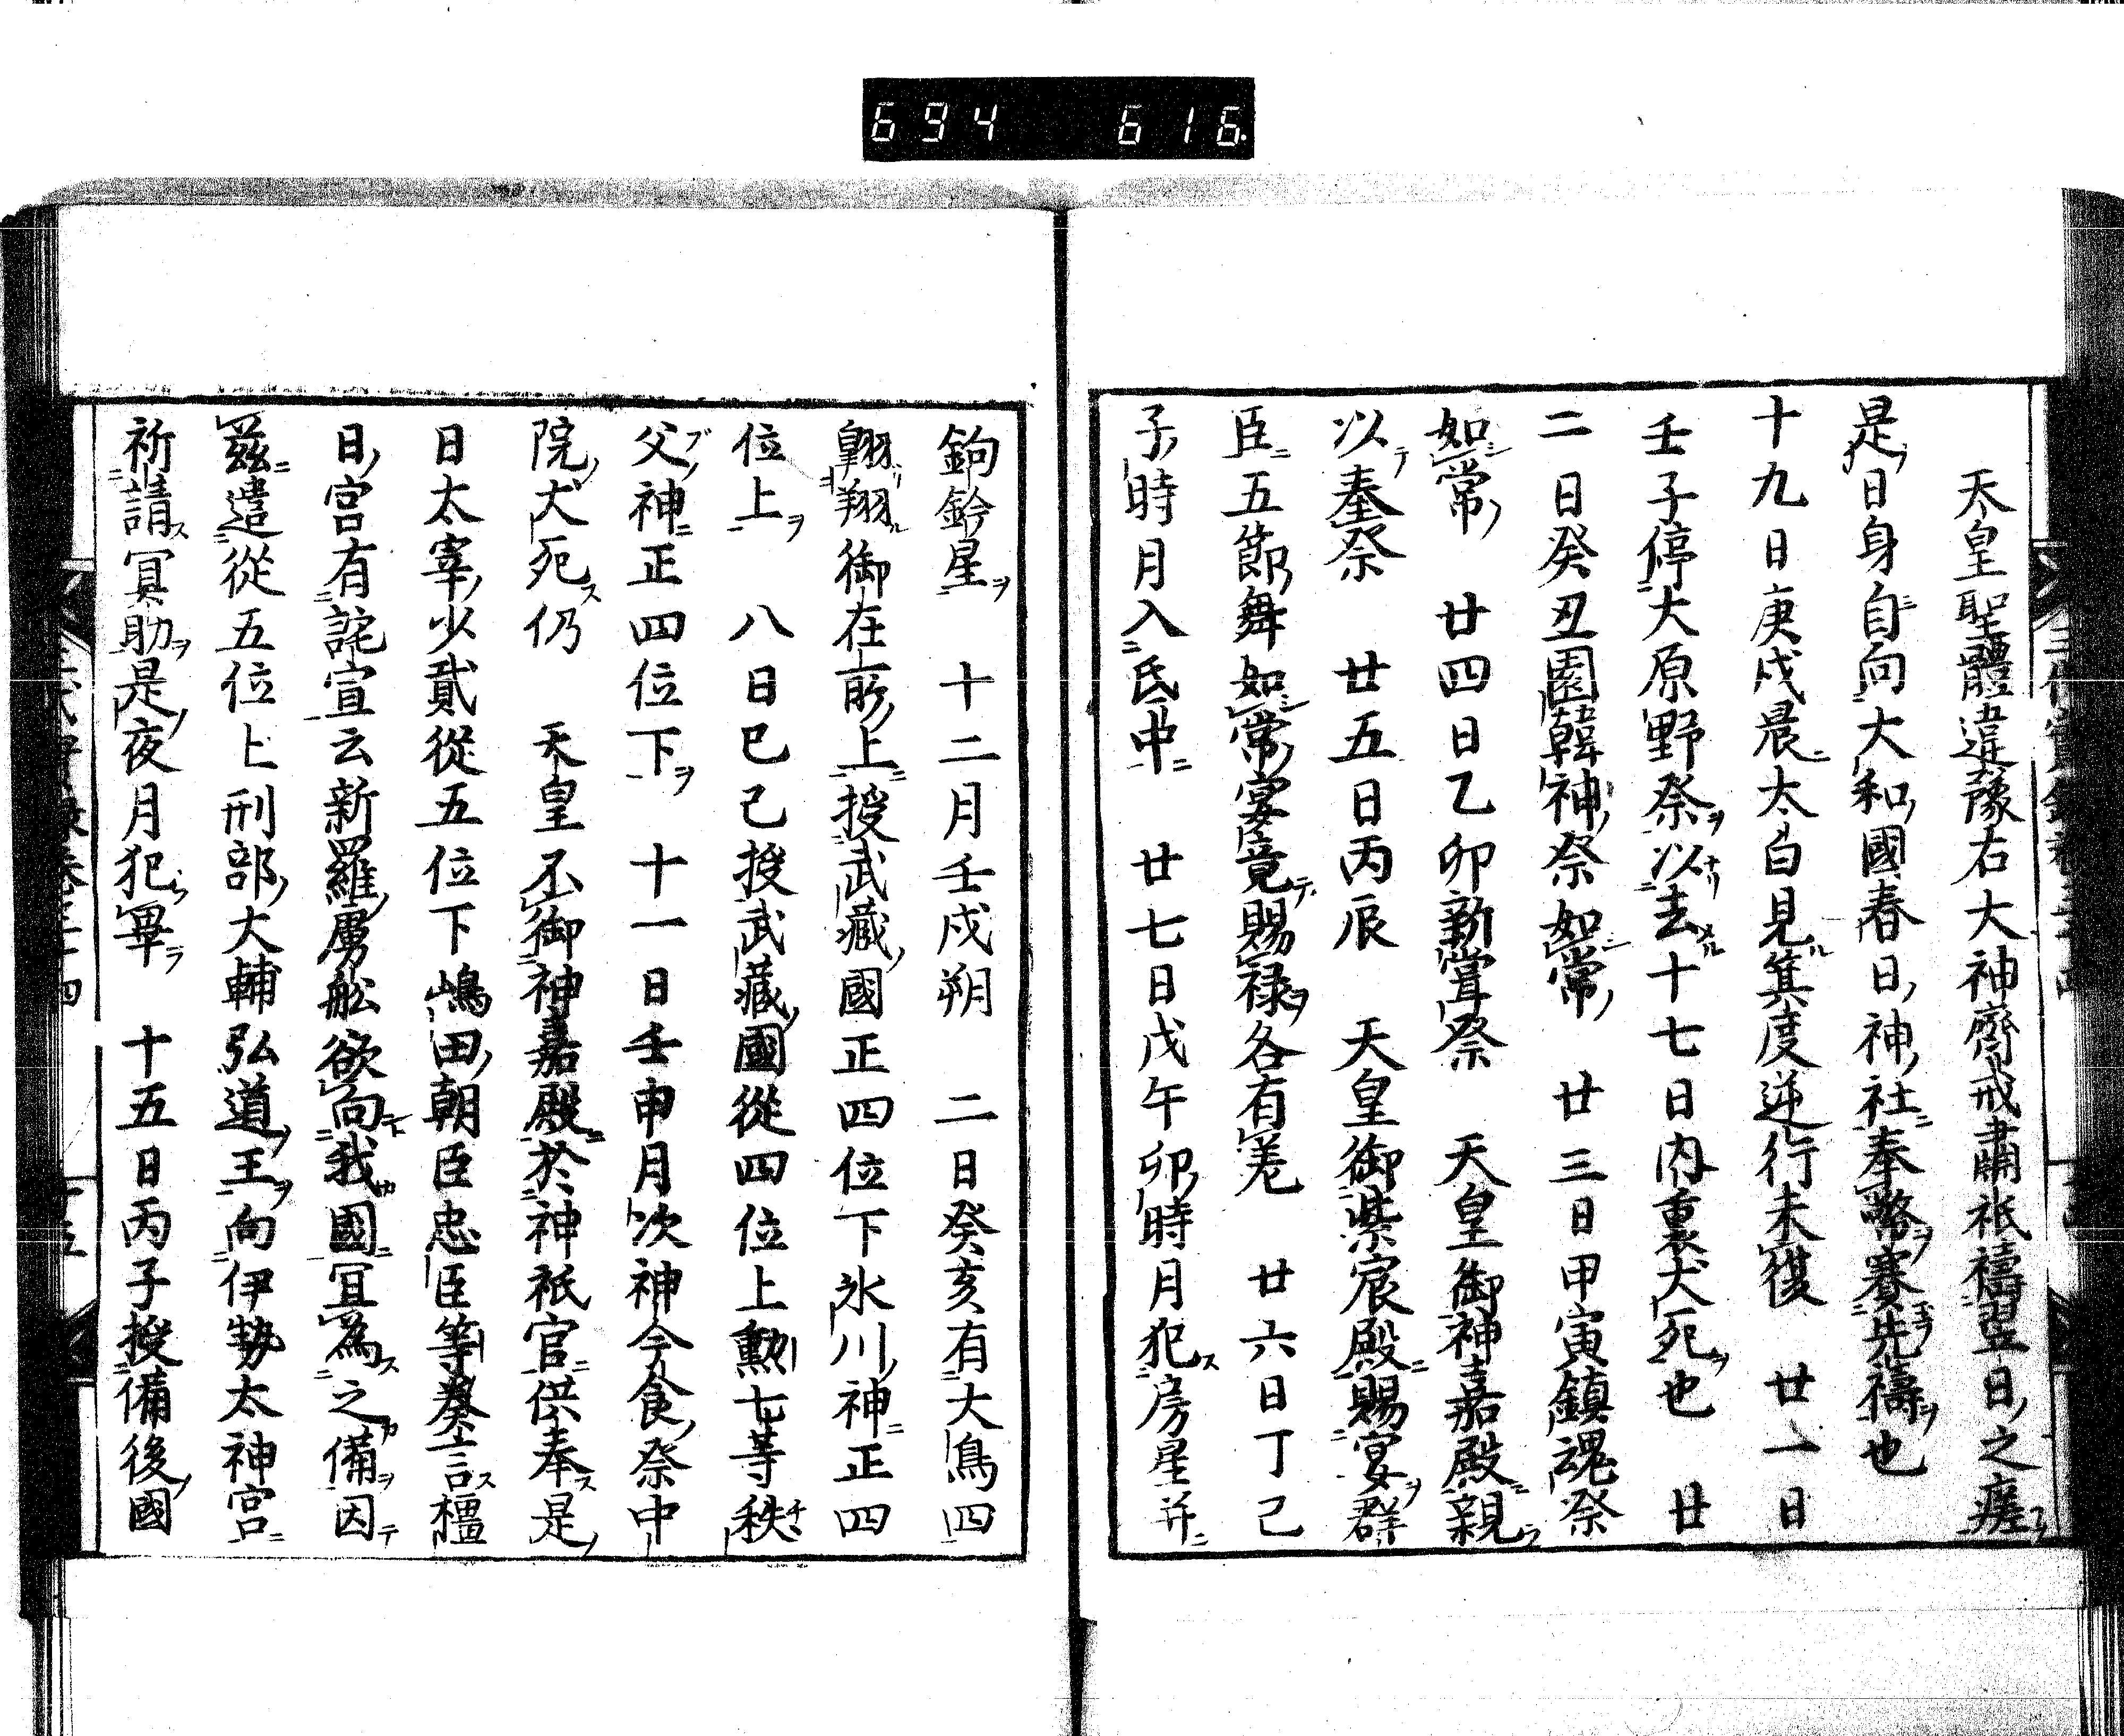 694 616
天皇聖體違豫右大神齋戒肅祇禱翌日之瘥
是日身自向大和國春日神社奉幣賽先禱也
十九日庚戌晨太白見箕度逆行未復 廿一日
壬子停大原野祭以去十七日内裏犬死也 廿
二日癸丑園韓神祭如常 廿三日甲寅鎮魂祭
如常 廿四日乙卯新甞祭 天皇御神嘉殿親
以奉祭 廿五日丙辰 天皇御紫宸殿賜宴群
臣五節舞如常宴竟賜禄各有差 廿六日丁己
子時月入氐中 廿七日戊午卯時月犯房星并
鉤鈐星 十二月壬戌朔 二日癸亥有大鳥四
翺翔御在所上授武藏國正四位下氷川神正四
位上 八日巳己授武藏國從四位上勲七等秩
父神正四位下 十一日壬申月次神今食祭中
院犬死仍 天皇不御神嘉殿於神祇官供奉是
日太宰少貳從五位下嶋田朝臣忠臣等奏言橿
日宮有詫宣云新羅虜舩欲向我國冝為之備因
茲遣從五位上刑部大輔弘道王向伊勢太神宮
祈請冥助是夜月犯畢 十五日丙子授備後國